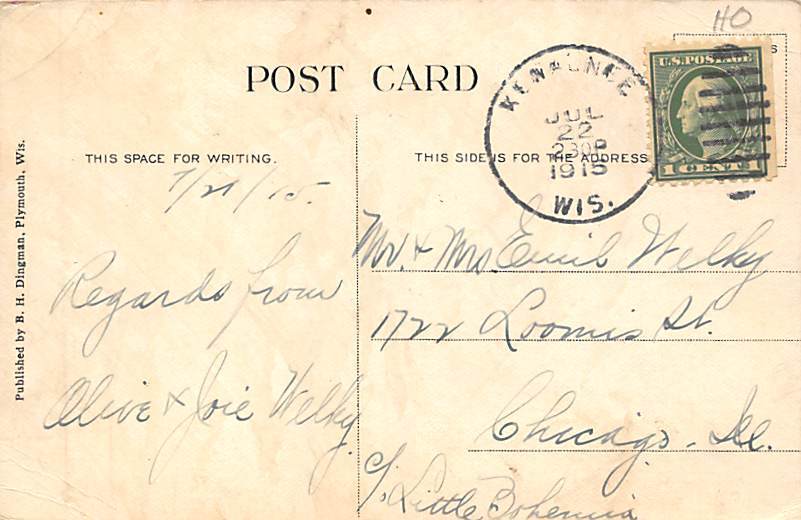 HO
POST CARD
KEWAUNEE
JUL
22
230P
1915
WIS.
U.S. POSTAGE
1 CENT
S
THIS SPACE FOR WRITING.
THIS SIDE IS FOR THE ADDRESS
Published by B. H. Dingman, Plymouth, Wis.
7/21/15.
Regards from
Olive & Joie Welky
Mr. & Mrs. Emil Welky
1722 Loomis St.
Chicago. Ill.
c/o. Little Bohemia